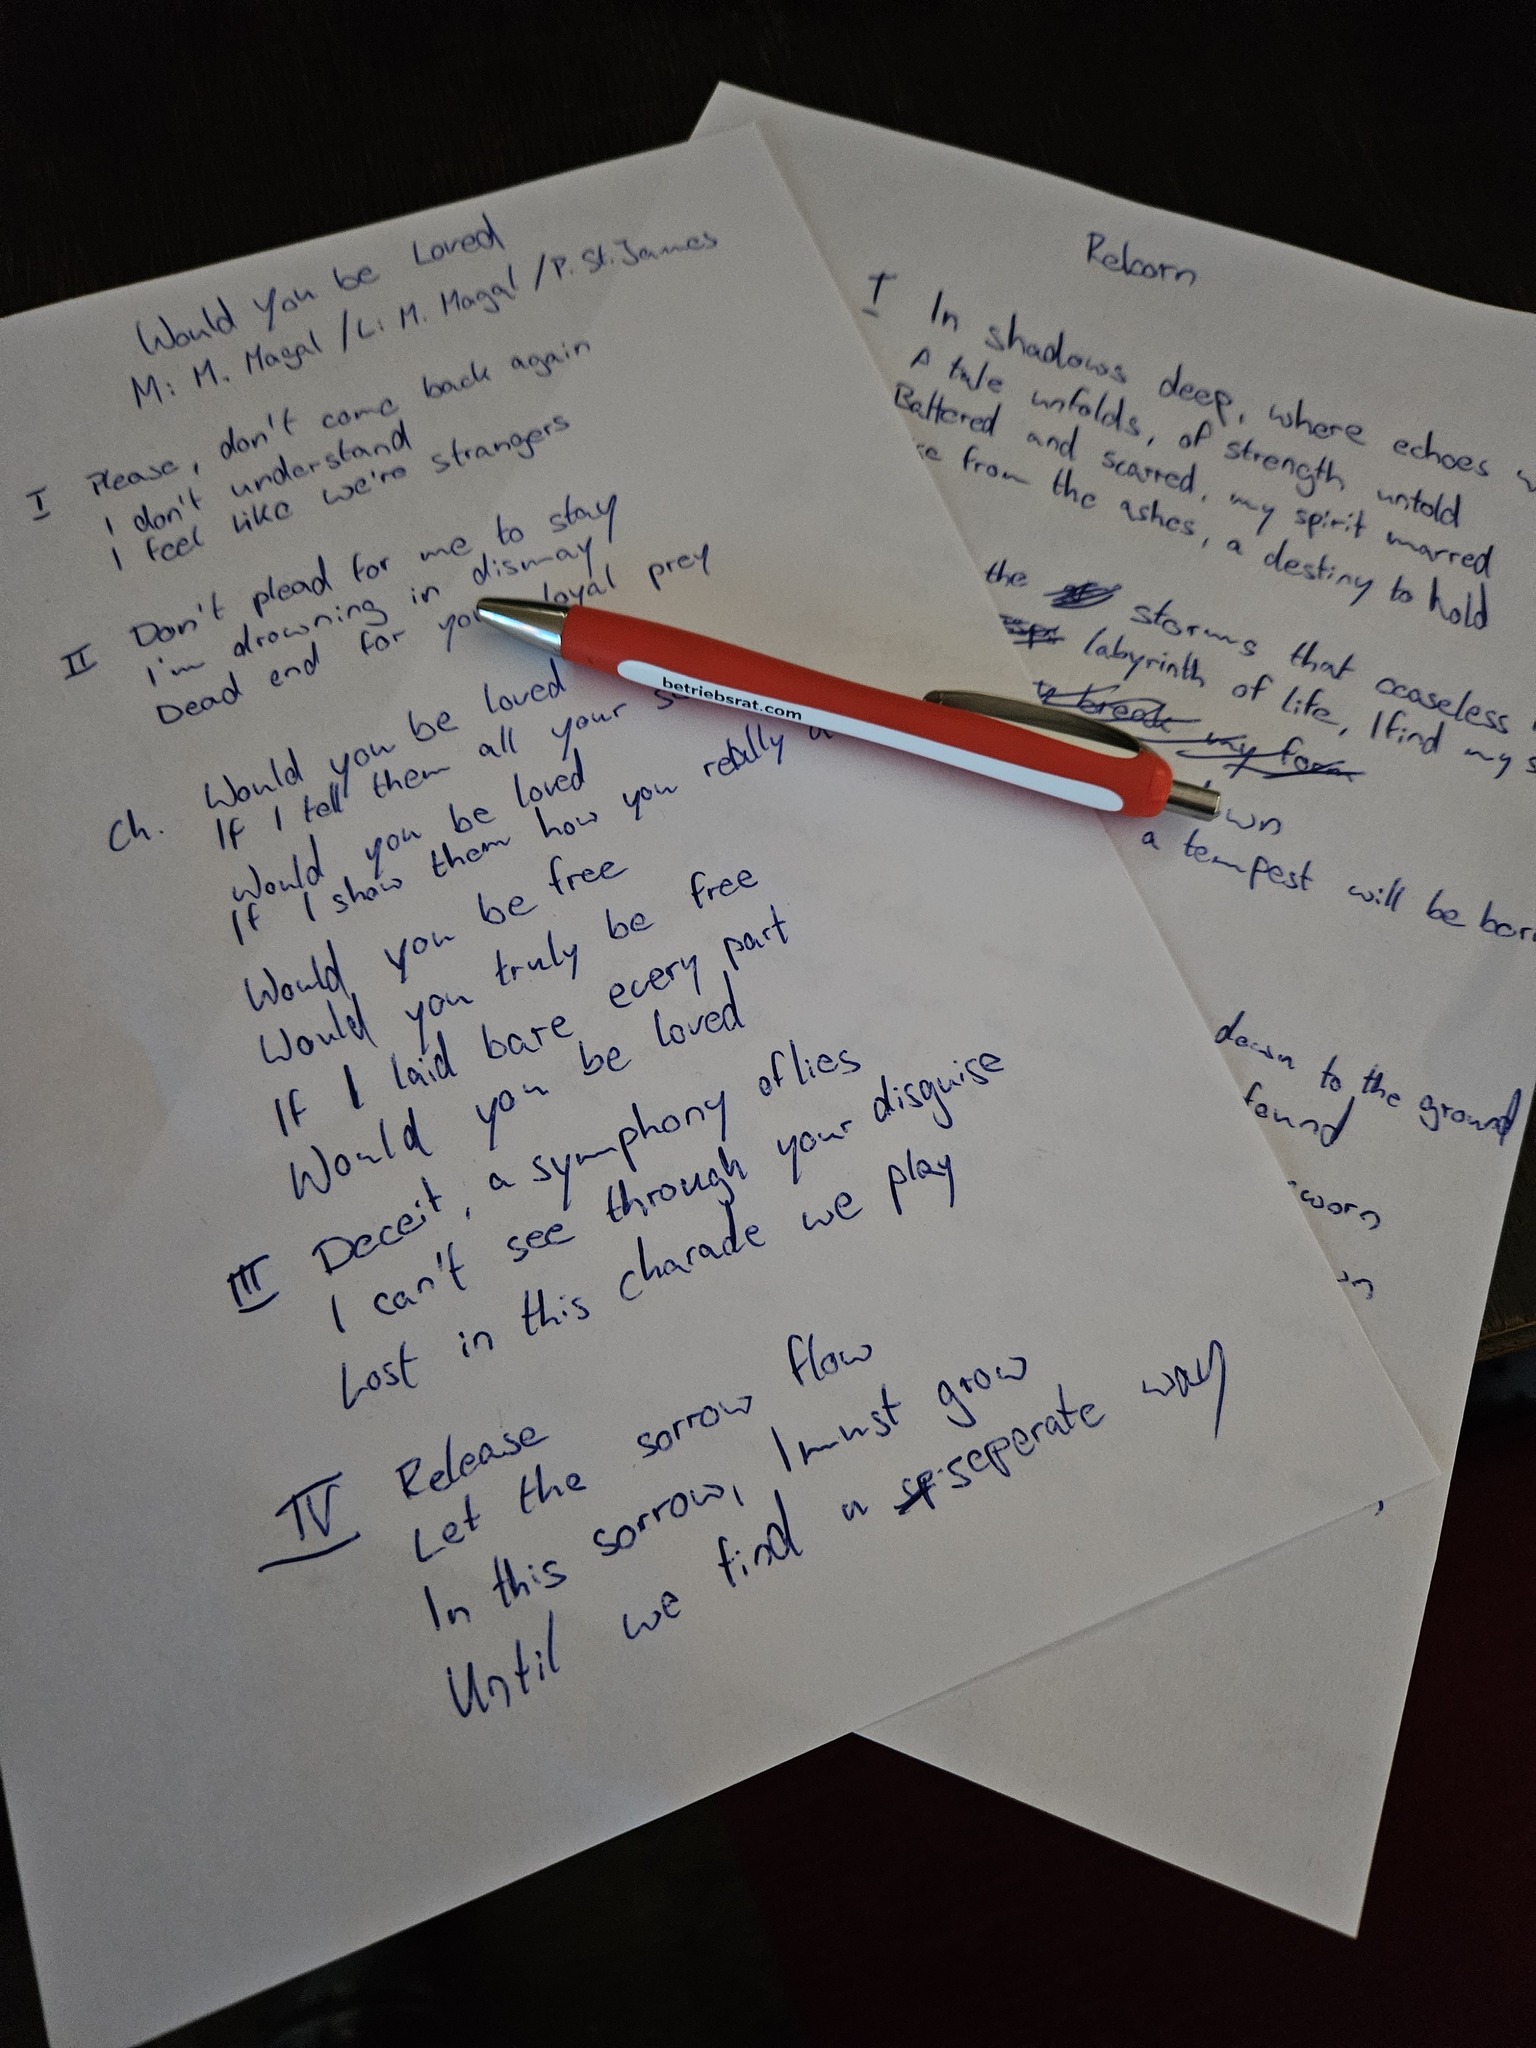 Would you be Loved
M: M. Magal / L: M. Magal / P. St. James
I Please, don't come back again
I don't understand
I feel like we're strangers
II Don't plead for me to stay
I'm drowning in dismay
Dead end for loyal prey
Ch. Would you be loved
If I tell them all your
Would you be loved
If I show them how you really
Would you be free
Would you truly be free
If I laid bare every part
Would you be loved
III Deceit, a symphony of lies
I can't see through your disguise
Lost in this charade we play
IV Release
Let the sorrow flow
In this sorrow, I must grow
Until we find a seperate way
betriebsrat.com
Reborn
I In shadows deep, where echoes
A tale unfolds, of strength untold
Battered and scarred, my spirit marred
from the ashes, a destiny to hold
the storms that ceaseless
labyrinth of life, I find my
to break my form
own
a tempest will be
down to the ground
found
worn